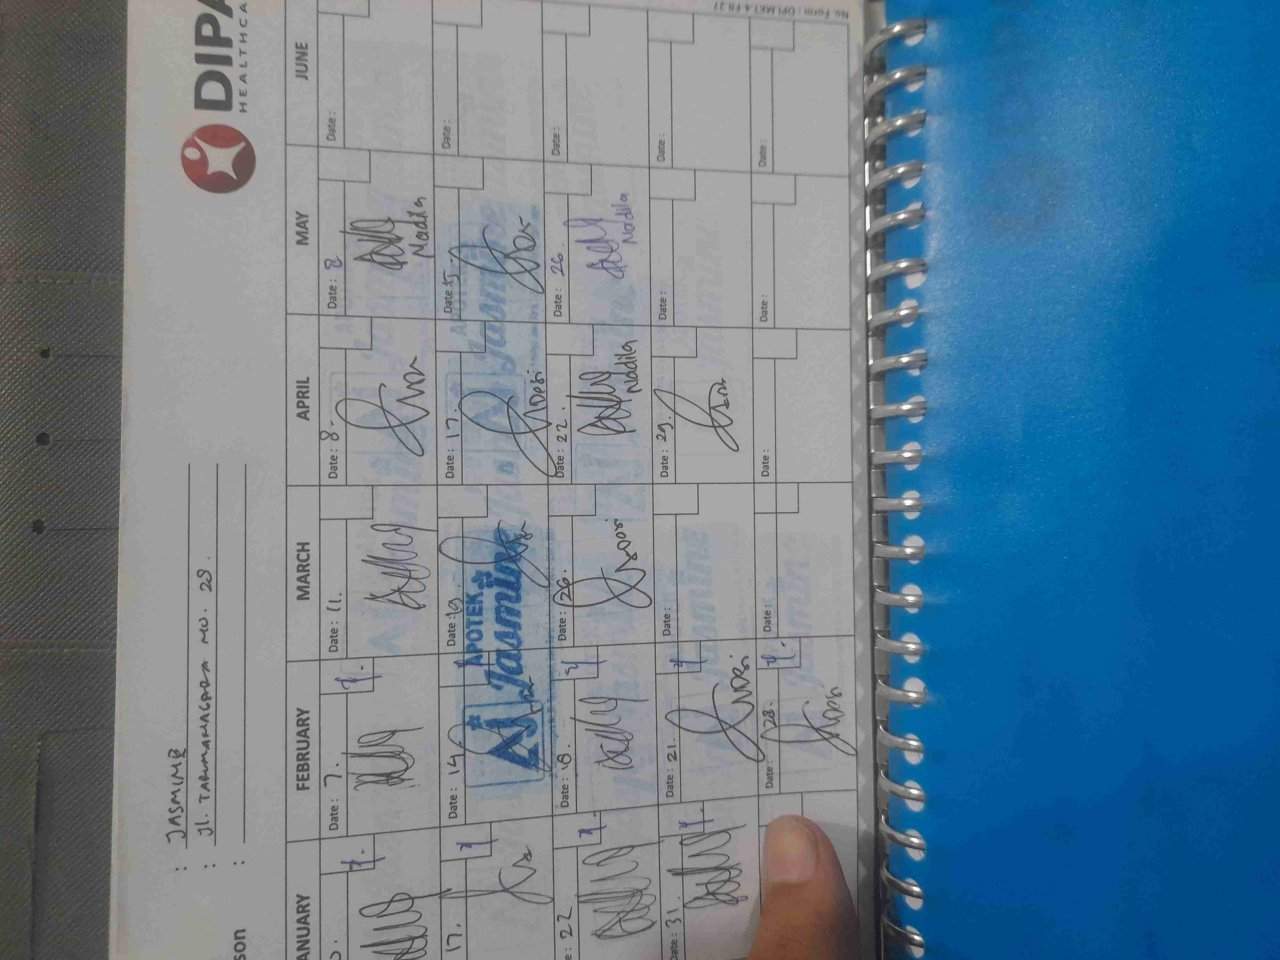 No. Form : DPI.MKT-4-FR-27
DIPA
HEALTHCA
: JASMINE
: Jl. TARUMANAGARA NO. 29.
:
son
ANUARY FEBRUARY MARCH APRIL MAY JUNE
Date : 7. Date : 11. Date : 8- Date : 8 Date :
Nadila
17. Date : 14 Date : 19. Date : 17. Date : 15 Date :
APOTEK
Jasmine
Desi
e : 22 Date : 18. Date : 26. Date : 22. Date : 26. Date :
Nadila Nadila
Date : 31. Date : 21. Date : Date : 29. Date : Date :
Date : 28. Date : Date : Date : Date :